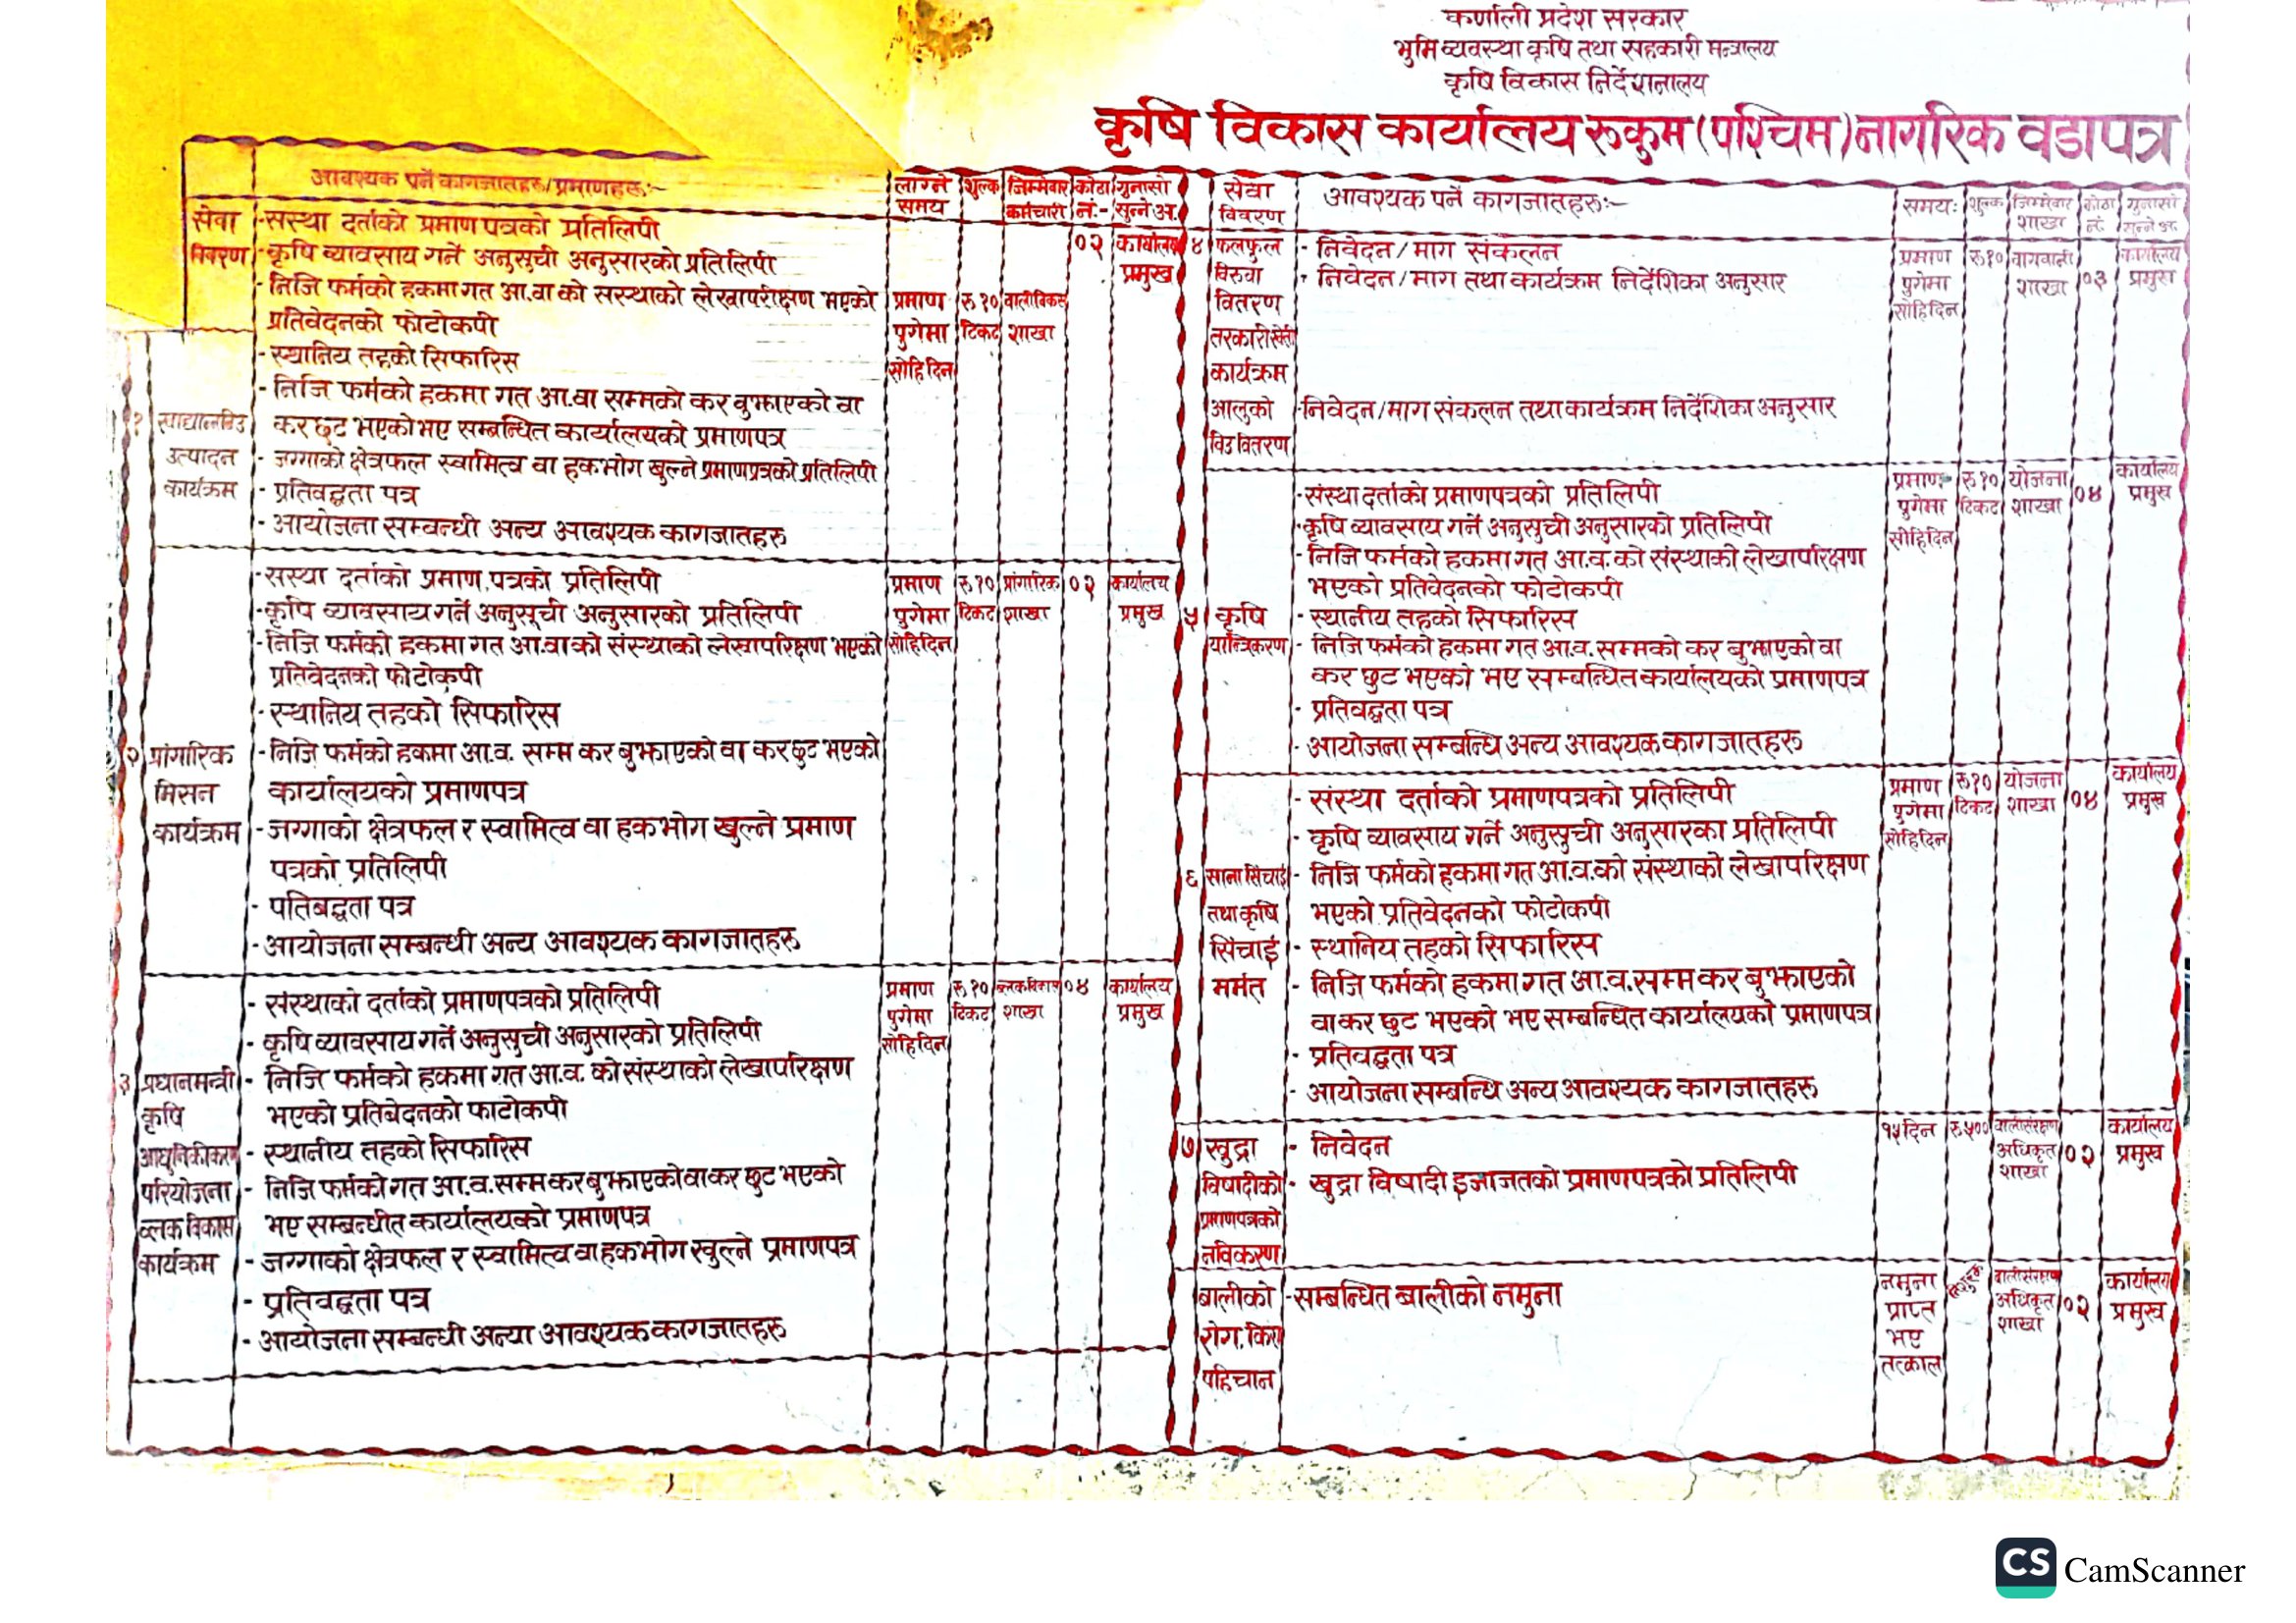 कर्णाली प्रदेश सरकार
भुमि व्यवस्था कृषि तथा सहकारी मन्त्रालय
कृषि विकास निर्देशनालय
कृषि विकास कार्यालय रूकुम (पश्चिम) नागरिक वडापत्र
सेवा विवरण
आवश्यक पर्ने कागजातहरू/प्रमाणहरूः-
लाग्ने समय
शुल्क
जिम्मेवार कर्मचारी
कोठा नं.-
गुनासो सुन्ने अ.
१ खाद्यान्नविउ
उत्पादन
कार्यक्रम
-सस्था दर्ताको प्रमाण पत्रको प्रतिलिपी
-कृषि व्यावसाय गर्ने अनुसुची अनुसारको प्रतिलिपी
-निजि फर्मको हकमा गत आ.वा को सस्थाको लेखापरीक्षण भएको
प्रतिवेदनको फोटोकपी
-स्थानिय तहको सिफारिस
-निजि फर्मको हकमा गत आ.वा सम्मको कर वुझाएको वा
कर छुट भएको भए सम्बन्धित कार्यालयको प्रमाणपत्र
- जग्गाको क्षेत्रफल स्वामित्व वा हकभोग खुल्ने प्रमाणपत्रको प्रतिलिपी
- प्रतिवद्धता पत्र
- आयोजना सम्बन्धी अन्य आवश्यक कागजातहरू
प्रमाण
पुगेमा
सोहिदिन
रु १०
टिकट
वालीविकास
शाखा
०२
कार्यालय
प्रमुख
२ प्रांगारिक
मिसन
कार्यक्रम
-सस्था दर्ताको प्रमाण पत्रको प्रतिलिपी
-कृषि व्यावसाय गर्ने अनुसूची अनुसारको प्रतिलिपी
-निजि फर्मको हकमा गत आ.वा को संस्थाको लेखापरिक्षण भएको
प्रतिवेदनको फोटोकपी
-स्थानिय तहको सिफारिस
-निजि फर्मको हकमा आ.व. सम्म कर बुझाएको वा कर छुट भएको
कार्यालयको प्रमाणपत्र
-जग्गाको क्षेत्रफल र स्वामित्व वा हकभोग खुल्ने प्रमाण
पत्रको प्रतिलिपी
- पतिबद्धता पत्र
-आयोजना सम्बन्धी अन्य आवश्यक कागजातहरू
प्रमाण
पुगेमा
सोहिदिन
रु १०
टिकट
प्रांगारिक
शाखा
०२
कार्यालय
प्रमुख
३ प्रधानमन्त्री
कृषि
आधुनिकीकरण
परियोजना
व्लक विकास
कार्यक्रम
- संस्थाको दर्ताको प्रमाणपत्रको प्रतिलिपी
- कृषि व्यावसाय गर्ने अनुसुची अनुसारको प्रतिलिपी
- निजि फर्मको हकमा गत आ.व. को संस्थाको लेखापरिक्षण
भएको प्रतिबेदनको फाटोकपी
- स्थानीय तहको सिफारिस
- निजि फर्मको गत आ.व. सम्म कर बुझाएको वा कर छुट भएको
भए सम्बन्धीत कार्यालयको प्रमाणपत्र
- जग्गाको क्षेत्रफल र स्वामित्व वा हकभोग खुल्ने प्रमाणपत्र
- प्रतिवद्धता पत्र
- आयोजना सम्बन्धी अन्या आवश्यक कागजातहरू
प्रमाण
पुगेमा
सोहिदिन
रु १०
टिकट
व्लक विकास
शाखा
०४
कार्यालय
प्रमुख
सेवा
विवरण
आवश्यक पर्ने कागजातहरूः-
समयः
शुल्क
जिम्मेवार शाखा
कोठा नं.
गुनासो सुन्ने अ.
४ फलफुल
विरुवा
वितरण
तरकारीखेती
कार्यक्रम
- निवेदन/माग संकलन
- निवेदन/माग तथा कार्यक्रम निर्देशिका अनुसार
प्रमाण
पुगेमा
सोहिदिन
रु १०
वागवानी
शाखा
०३
कार्यालय
प्रमुख
आलुको
विउ वितरण
-निवेदन/माग संकलन तथा कार्यक्रम निर्देशिका अनुसार
५ कृषि
यान्त्रिकरण
-संस्था दर्ताको प्रमाणपत्रको प्रतिलिपी
-कृषि व्यावसाय गर्ने अनुसुची अनुसारको प्रतिलिपी
-निजि फर्मको हकमा गत आ.व. को संस्थाको लेखापरिक्षण
भएको प्रतिवेदनको फोटोकपी
- स्थानीय तहको सिफारिस
- निजि फर्मको हकमा गत आ.व. सम्मको कर बुझाएको वा
कर छुट भएको भए सम्बन्धित कार्यालयको प्रमाणपत्र
- प्रतिवद्धता पत्र
- आयोजना सम्बन्धि अन्य आवश्यक कागजातहरू
प्रमाण
पुगेमा
सोहिदिन
रु १०
टिकट
योजना
शाखा
०४
कार्यालय
प्रमुख
६ साना सिंचाई
तथा कृषि
सिंचाई
मर्मत
- संस्था दर्ताको प्रमाणपत्रको प्रतिलिपी
- कृषि व्यावसाय गर्ने अनुसुची अनुसारका प्रतिलिपी
- निजि फर्मको हकमा गत आ.व.को संस्थाको लेखापरिक्षण
भएको प्रतिवेदनको फोटोकपी
- स्थानिय तहको सिफारिस
- निजि फर्मको हकमा गत आ.व. सम्म कर बुझाएको
वा कर छुट भएको भए सम्बन्धित कार्यालयको प्रमाणपत्र
- प्रतिवद्धता पत्र
- आयोजना सम्बन्धि अन्य आवश्यक कागजातहरू
प्रमाण
पुगेमा
सोहिदिन
रु १०
टिकट
योजना
शाखा
०४
कार्यालय
प्रमुख
७ खुद्रा
विषादीको
प्रमाणपत्रको
नविकरण
- निवेदन
- खुद्रा विषादी इजाजतको प्रमाणपत्रको प्रतिलिपी
१५ दिन
रु ५००
वालीसंरक्षण
अधिकृत
शाखा
०२
कार्यालय
प्रमुख
बालीको
रोग, किरा
पहिचान
-सम्बन्धित बालीको नमुना
नमुना
प्राप्त
भए
तत्काल
वालीसंरक्षण
अधिकृत
शाखा
०२
कार्यालय
प्रमुख
CS CamScanner